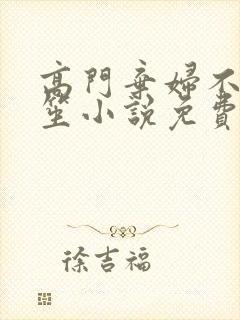 高門棄婦不
笙小說免費
徐吉福